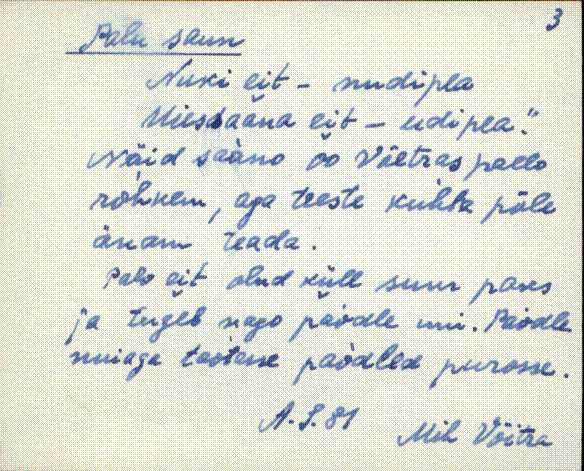 3
Palu saun
Nuki eit - nudipea
Uiesaäna eit - udipea."
Näid saäno õo Võetras paelo
rohkem, aga teeste kuhta põle
änam teada.
Palo eit olnd küll suur paks
ja tugeb nago päodle mui. Päodle
muiaga
päodled purosse.
A. S. 81
Mih Võitra